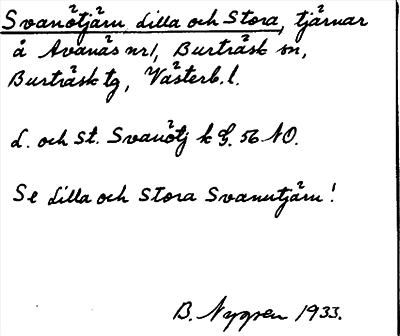 Svanötjärn, Lilla och Stora, tjärnar
å Avanäs nr 1, Burträsk sn,
Burträsk tg, Västerb. l.
L. och St. Svanötj k G. 56 NO.
Se Lilla och Stora Svanutjärn!
B. Nygren 1933.